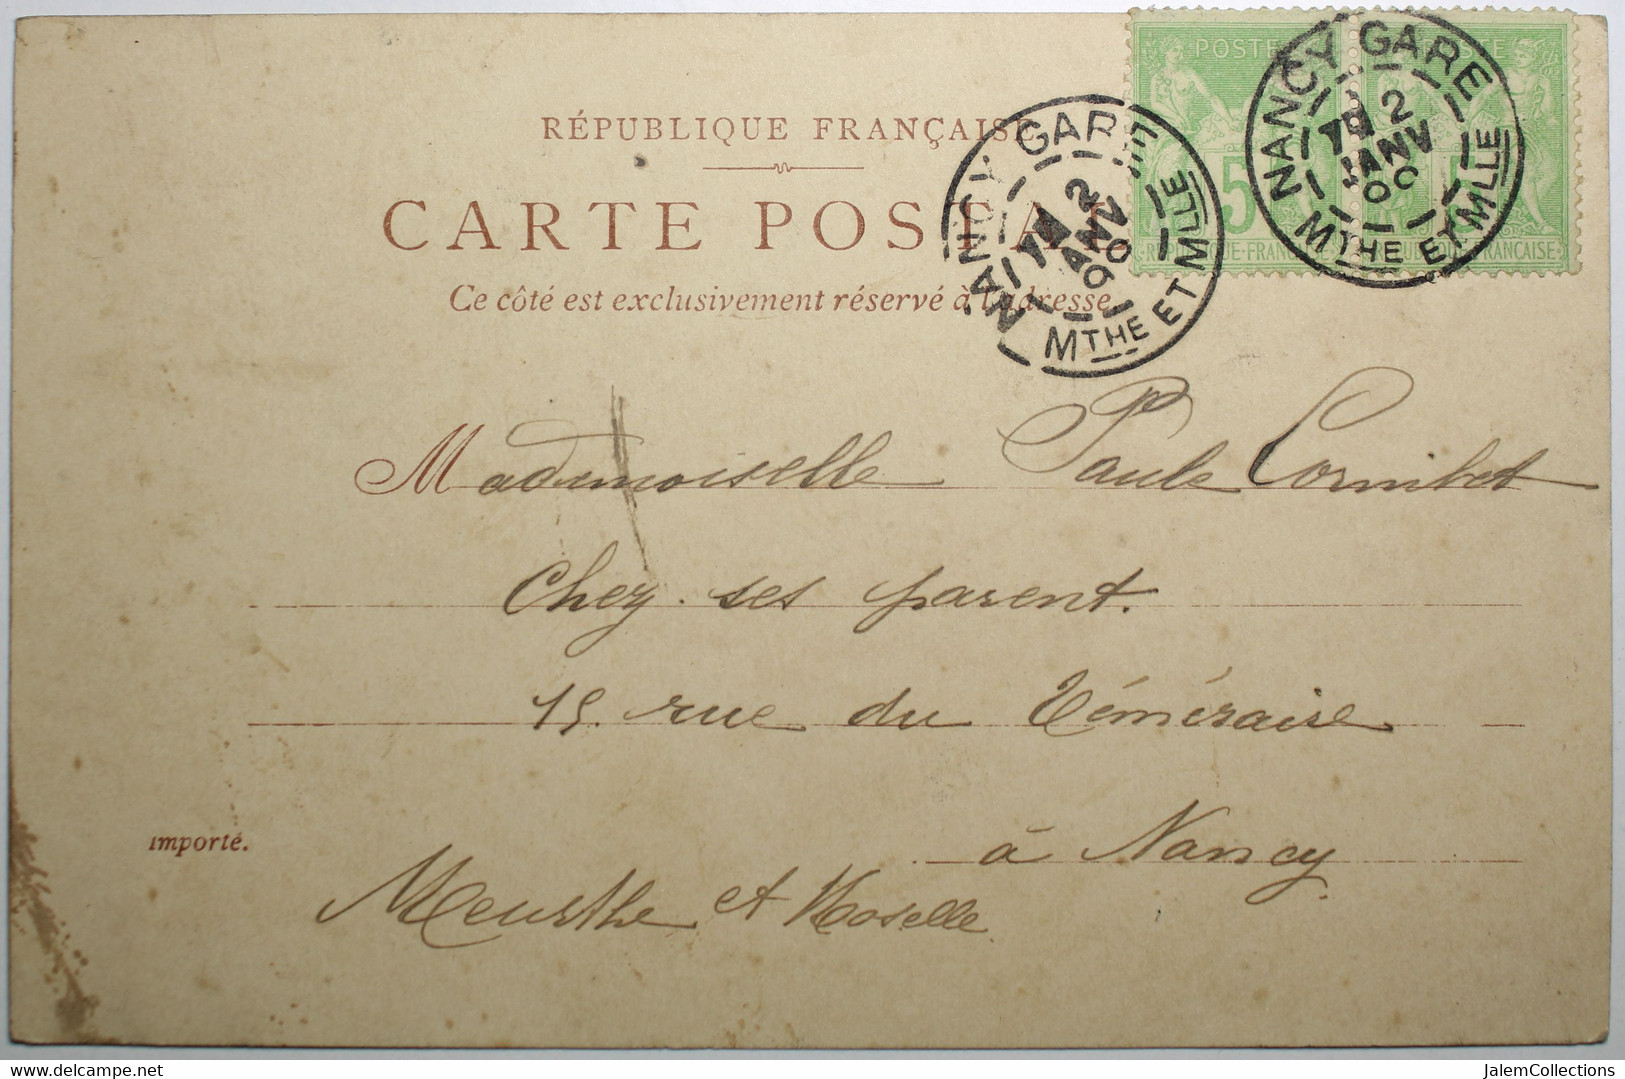 RÉPUBLIQUE FRANÇAISE
CARTE POSTALE
Ce côté est exclusivement réservé à l'adresse
POSTES
5
REPUBLIQUE FRANÇAISE
NANCY GARE
2
JANV
00
MTHE ET MLLE
NANCY GARE
2
JANV
00
MTHE ET MLLE
Mademoiselle Paule Cornibet
Chez ses parent.
15. rue du Téméraire
à Nancy
importé.
Meurthe et Moselle
delcampe.net
JalemCollections